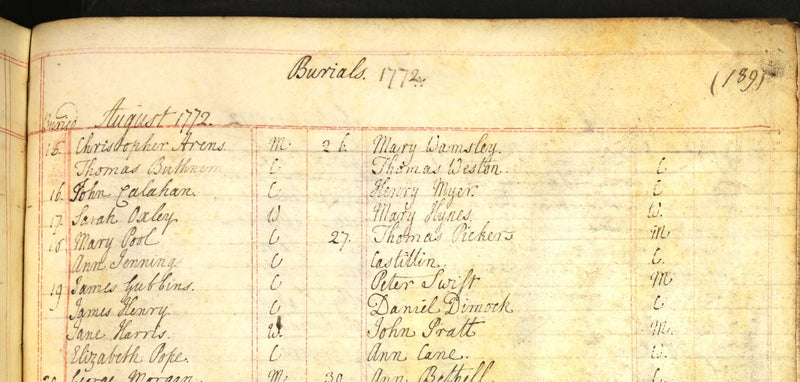 Burials. 1772.
(189)
Buried August 1772.
15. Christopher Arens. M.
Thomas Buthnem C
16. John Calahan. C
17. Sarah Oxley W
18 Mary Pool C
Ann Jenning C
19 James Gubbins. C
James Henry. C
Jane Harris. W.
Elizabeth Pope. C
20 George Morgan M
26. Mary Wamsley.
Thomas Weston. C
Henry Myer. C
Mary Hynes. W.
27. Thomas Pickers M
Castillin. C.
Peter Swift M
Daniel Dimock C
John Pratt M.
Ann Cane.
30 Ann Bethell C